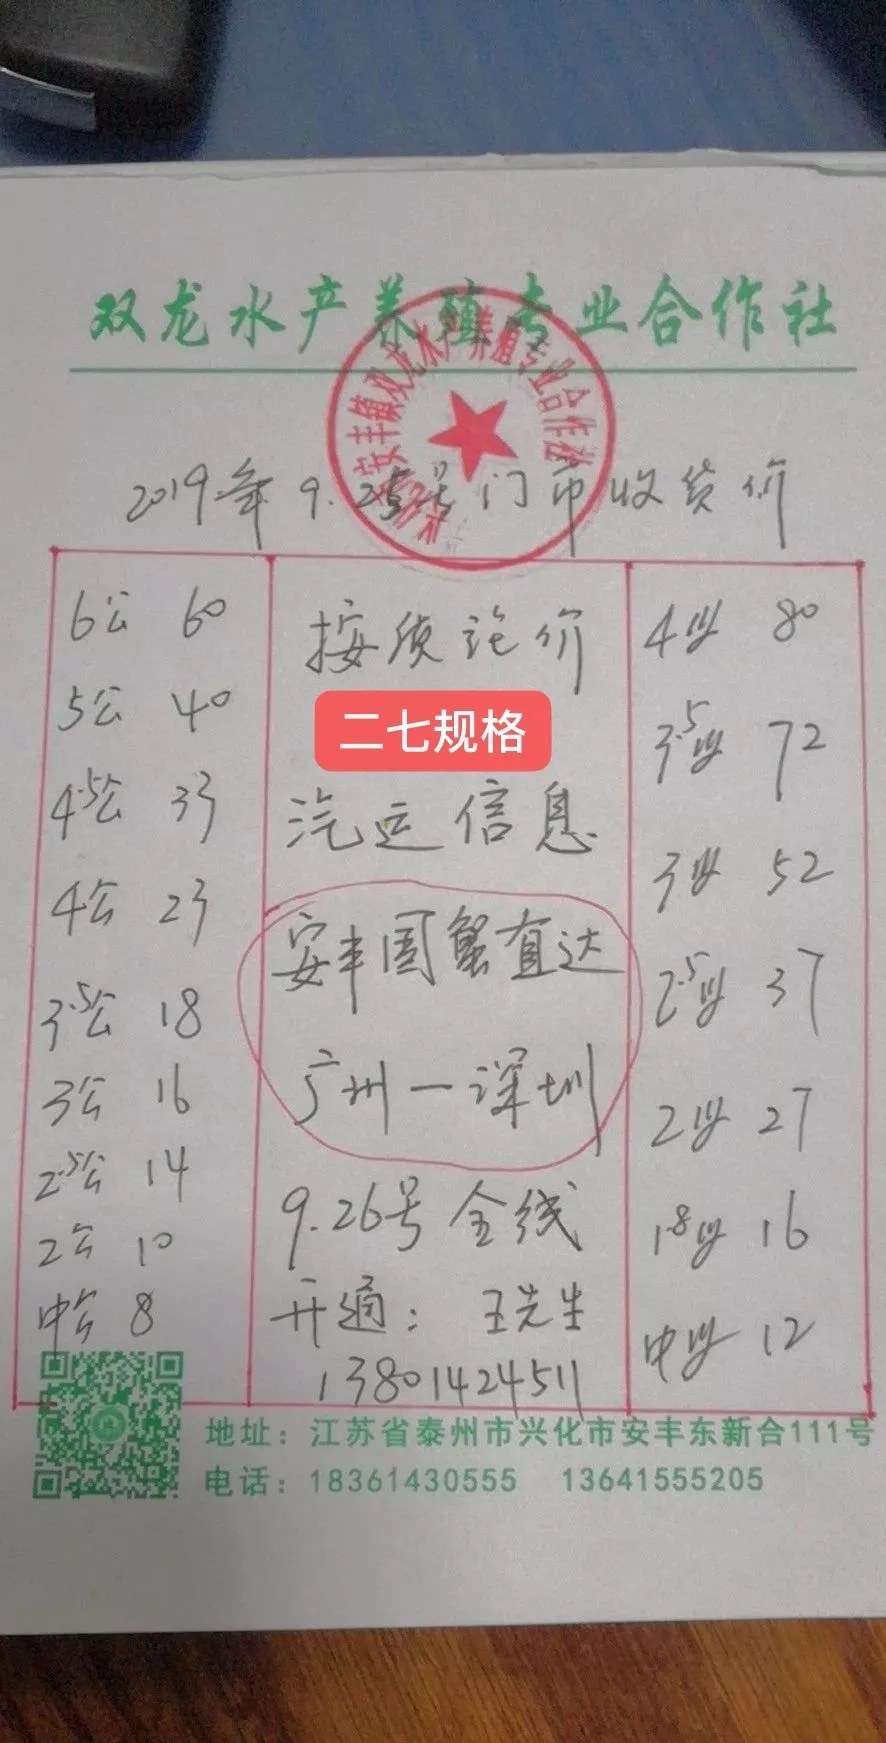 双龙水产养殖专业合作社
安丰镇双龙水产养殖专业合作社
2019年9.25号门市收货价
6公 60
5公 40
4.5公 33
4公 23
3.5公 18
3公 16
2.5公 14
2公 10
中公 8
按质论价
二七规格
汽运信息
安丰围蟹直达
广州一深圳
9.26号全线
开通：王先生
13801424511
4母 80
3.5母 72
3母 52
2.5母 37
2母 27
1.8母 16
中母 12
地址：江苏省泰州市兴化市安丰东新合111号
电话：18361430555 13641555205